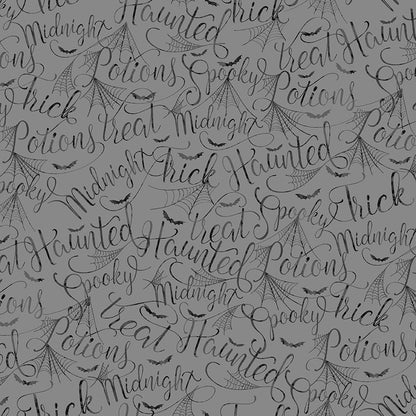 Haunted Trick
Midnight treat Haunted
Potions Spooky
Trick
Potions treat Midnight
Midnight Trick Haunted
Spooky Spooky Trick
Haunted treat Midnight
Haunted
Spooky Potions
Potions Midnight Trick
treat Spooky
Potions Haunted Potions
treat
Midnight Spooky